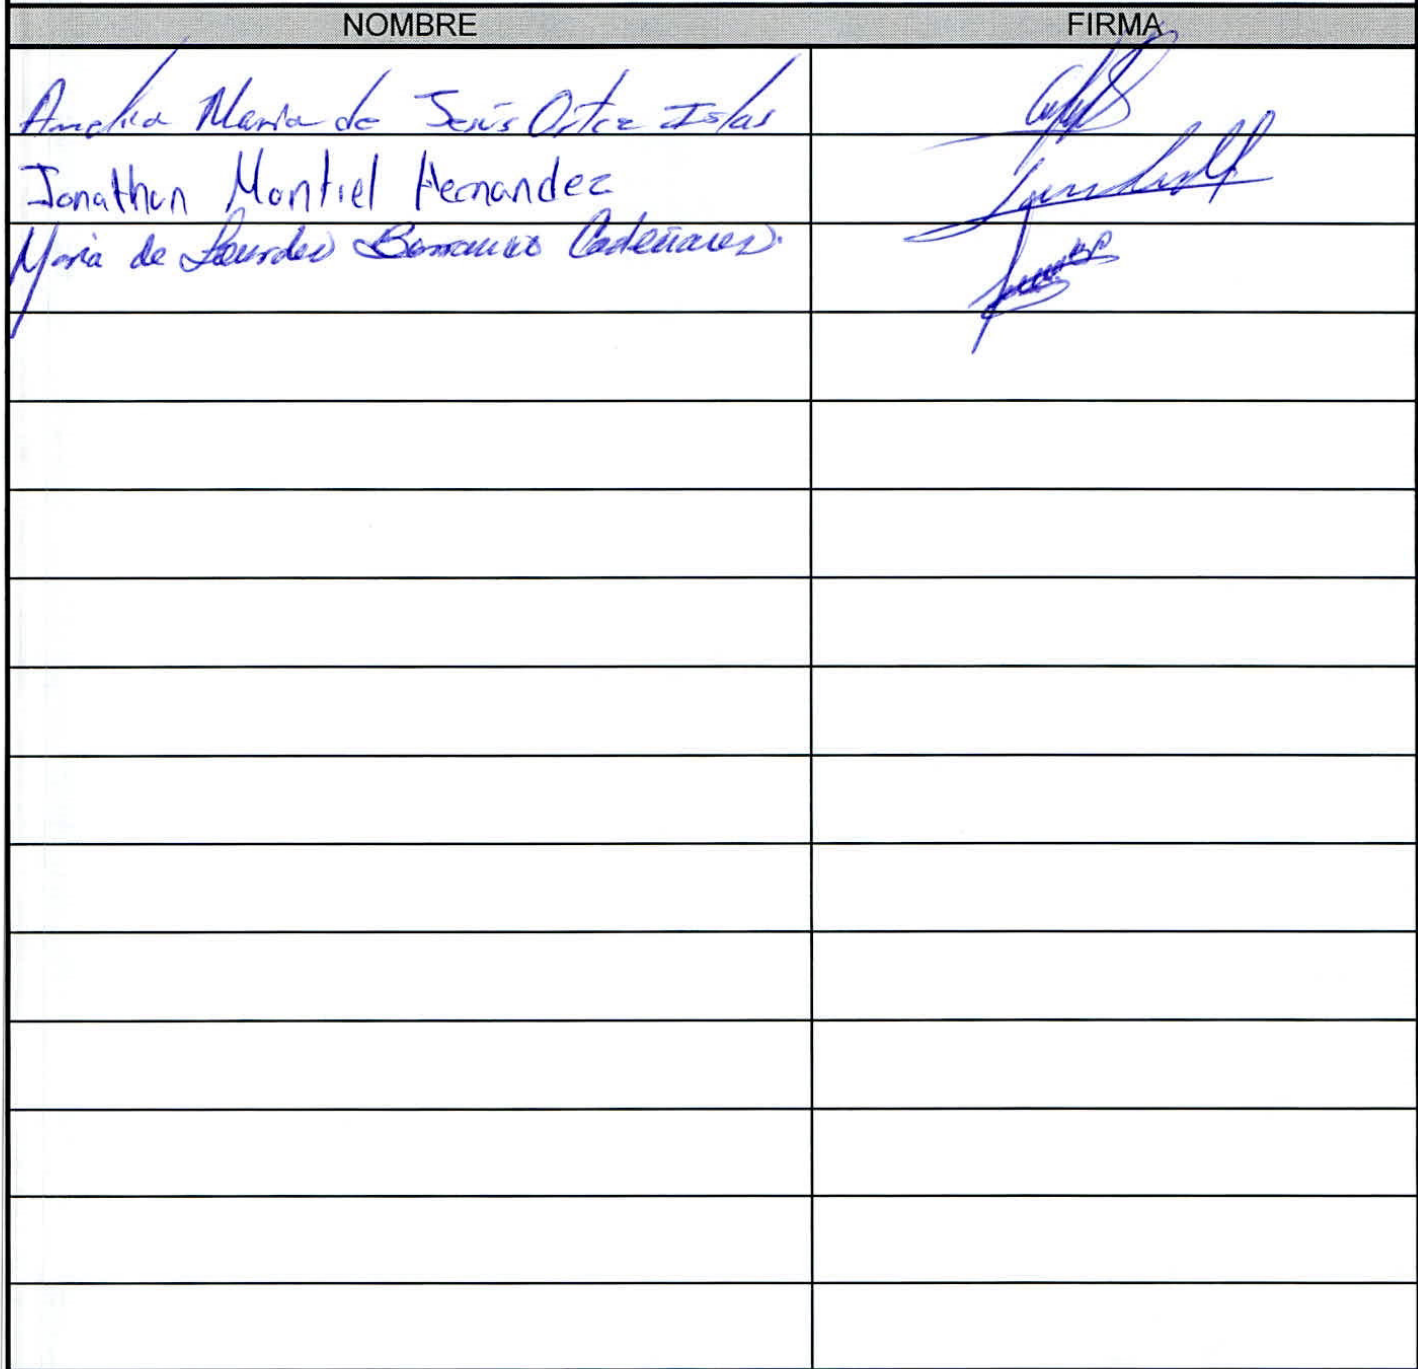 NOMBRE FIRMA
Amelia Maria de Jesús Ortiz Islas
Jonathan Montiel Hernandez
María de Lourdes Barranco